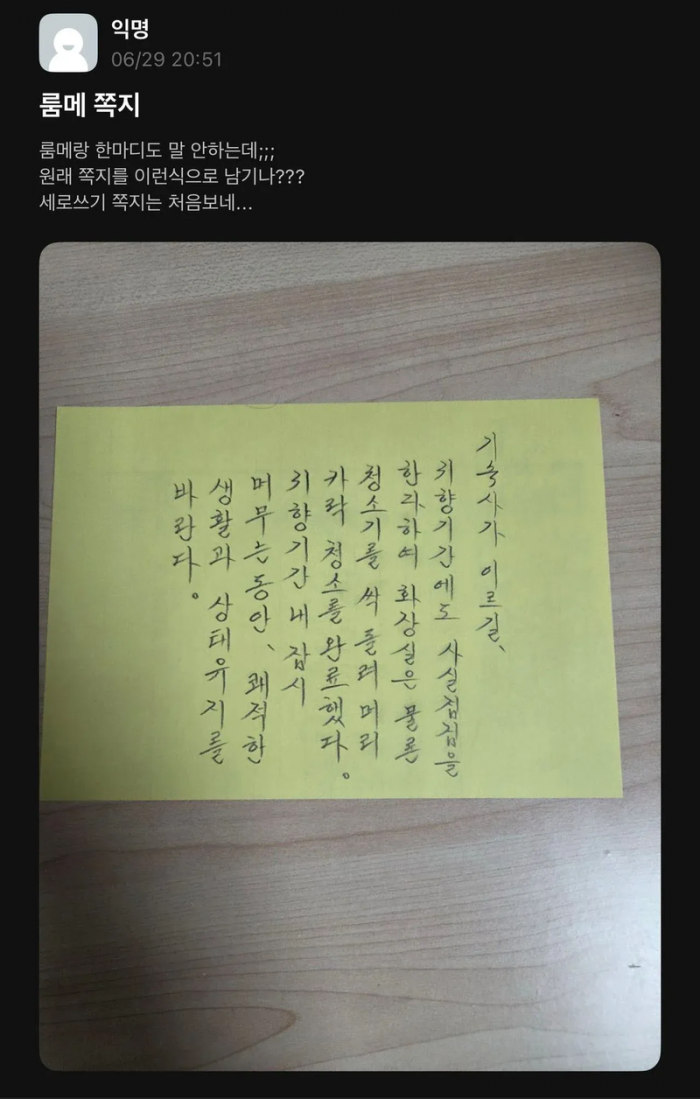 익명
06/29 20:51
룸메 쪽지
룸메랑 한마디도 말 안하는데;;;
원래 쪽지를 이런식으로 남기나???
세로쓰기 쪽지는 처음보네...
기숙사가 이르길、
귀향기간에도 사실점검을
한다하여 화장실은 물론
청소기를 싹 돌려 머리
카락 청소를 완료했다。
귀향기간 내 잠시
머무는 동안、 쾌적한
생활과 상태유지를
바란다。